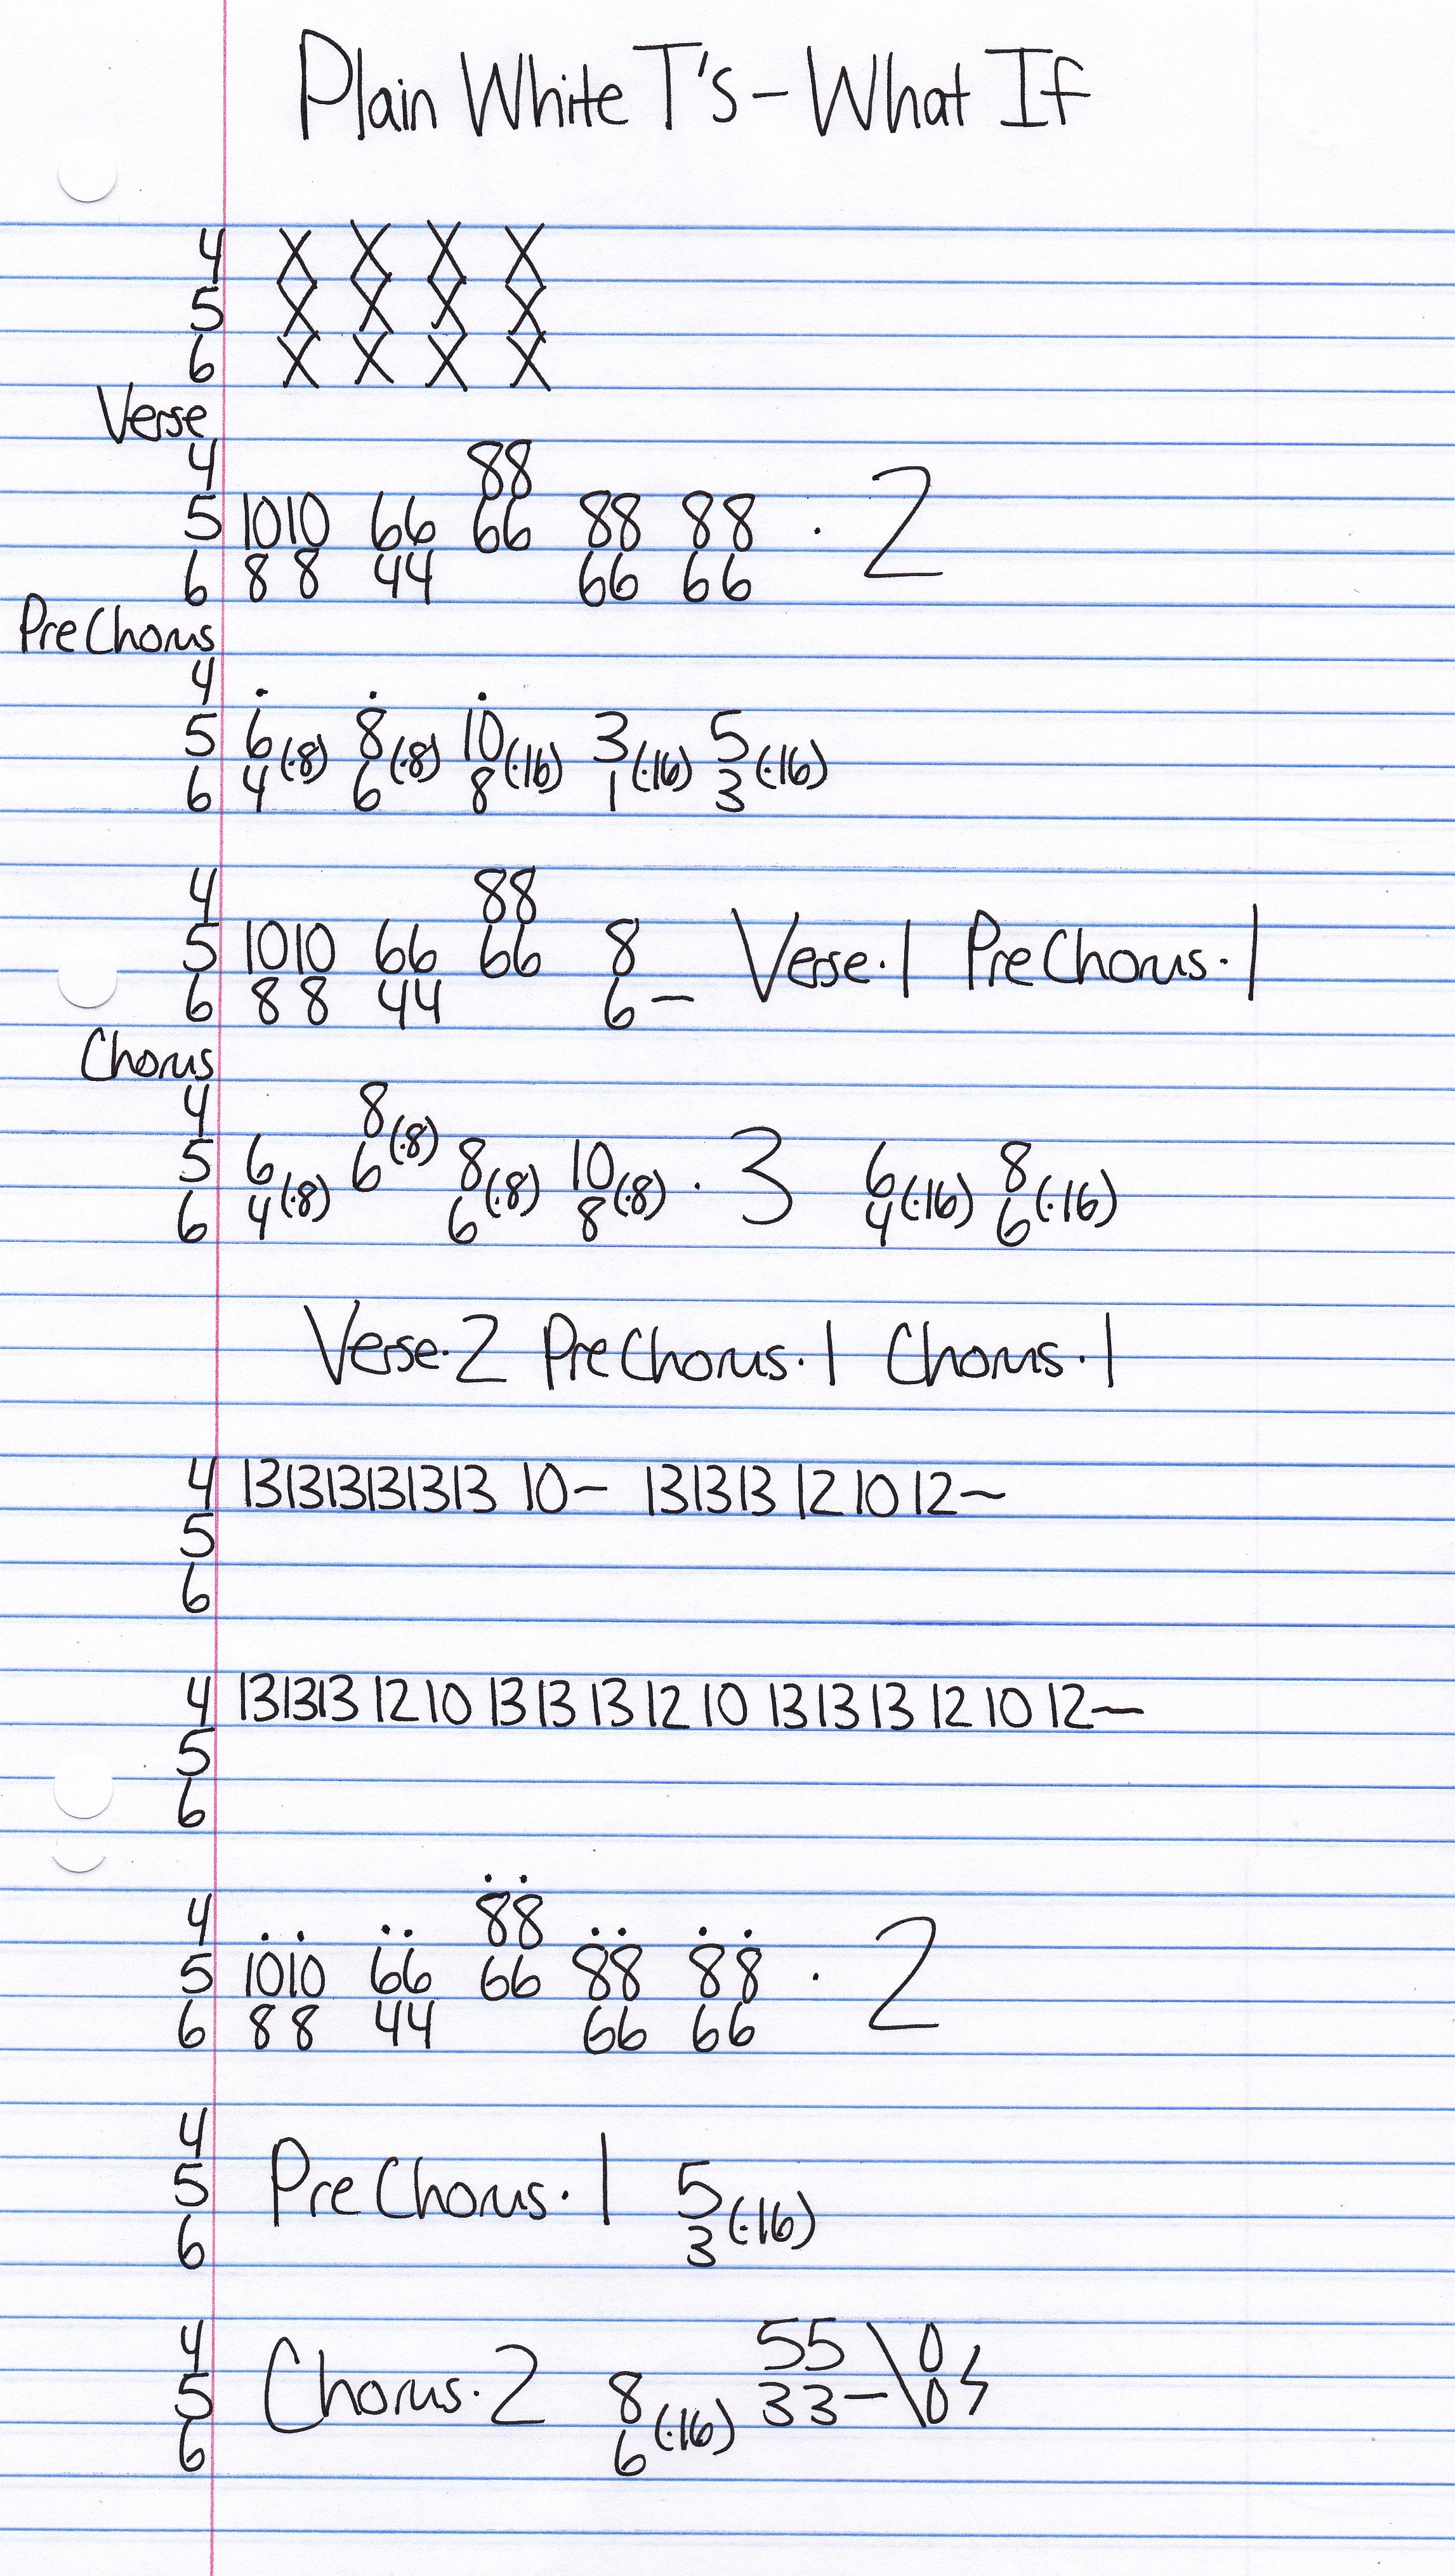 Plain White T's - What If
4 X X X X
5 X X X X
6 X X X X
Verse
4 88
5 1010 66 66 88 88 · 2
6 8 8 44 66 66
PreChorus
4 . . .
5 6 8 10 3 5
(·8) (·8) (·16) (·16) (·16)
6 4 6 8 1 3
4 88
5 1010 66 66 8 Verse·1 PreChorus·1
6 8 8 44 6 –
Chorus
4 8(·8)
5 6 6 8 10 · 3 6 8
(·8) (·8) (·8) (·16) (·16)
6 4 6 8 4 6
Verse·2 PreChorus·1 Chorus·1
4 131313131313 10– 131313 12 10 12~
5
6
4 131313 12 10 13 13 13 12 10 13 13 13 12 10 12~
5
6
4 88
5 1010 66 66 88 88 · 2
6 8 8 44 66 66
4
5 PreChorus·1 5(·16)
6 3
4 55\0
5 Chorus·2 8 33–\0
6 6(·16)